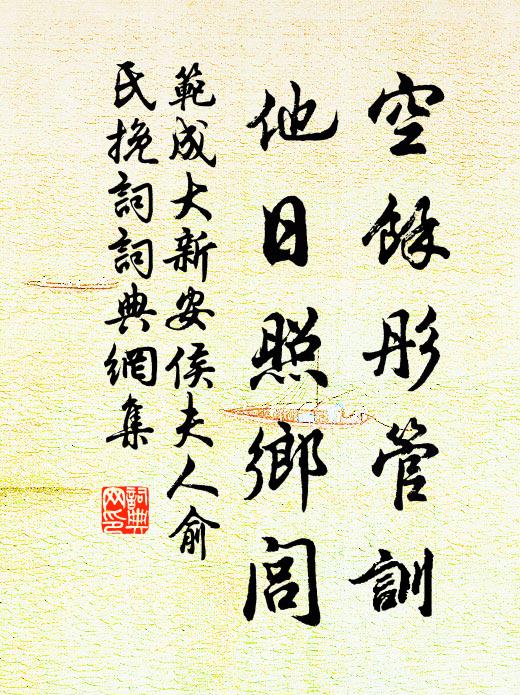 空餘彤管訓
他日照鄉閭
範成大新安侯夫人俞
氏挽詞詞典網集
詞典网印